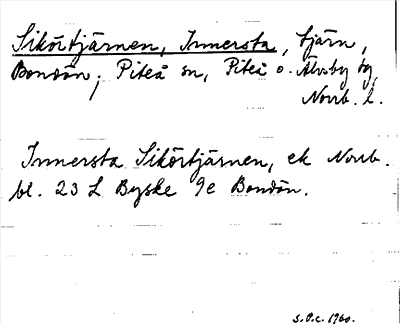 Sikörtjärnen, Innersta, tjärn,
Bondön, Piteå sn, Piteå o. Älvsby tg,
Norrb. l.
Innersta Sikörtjärnen, ek Norrb.
bl. 23 L Byske 9e Bondön.
S.O.c. 1960.